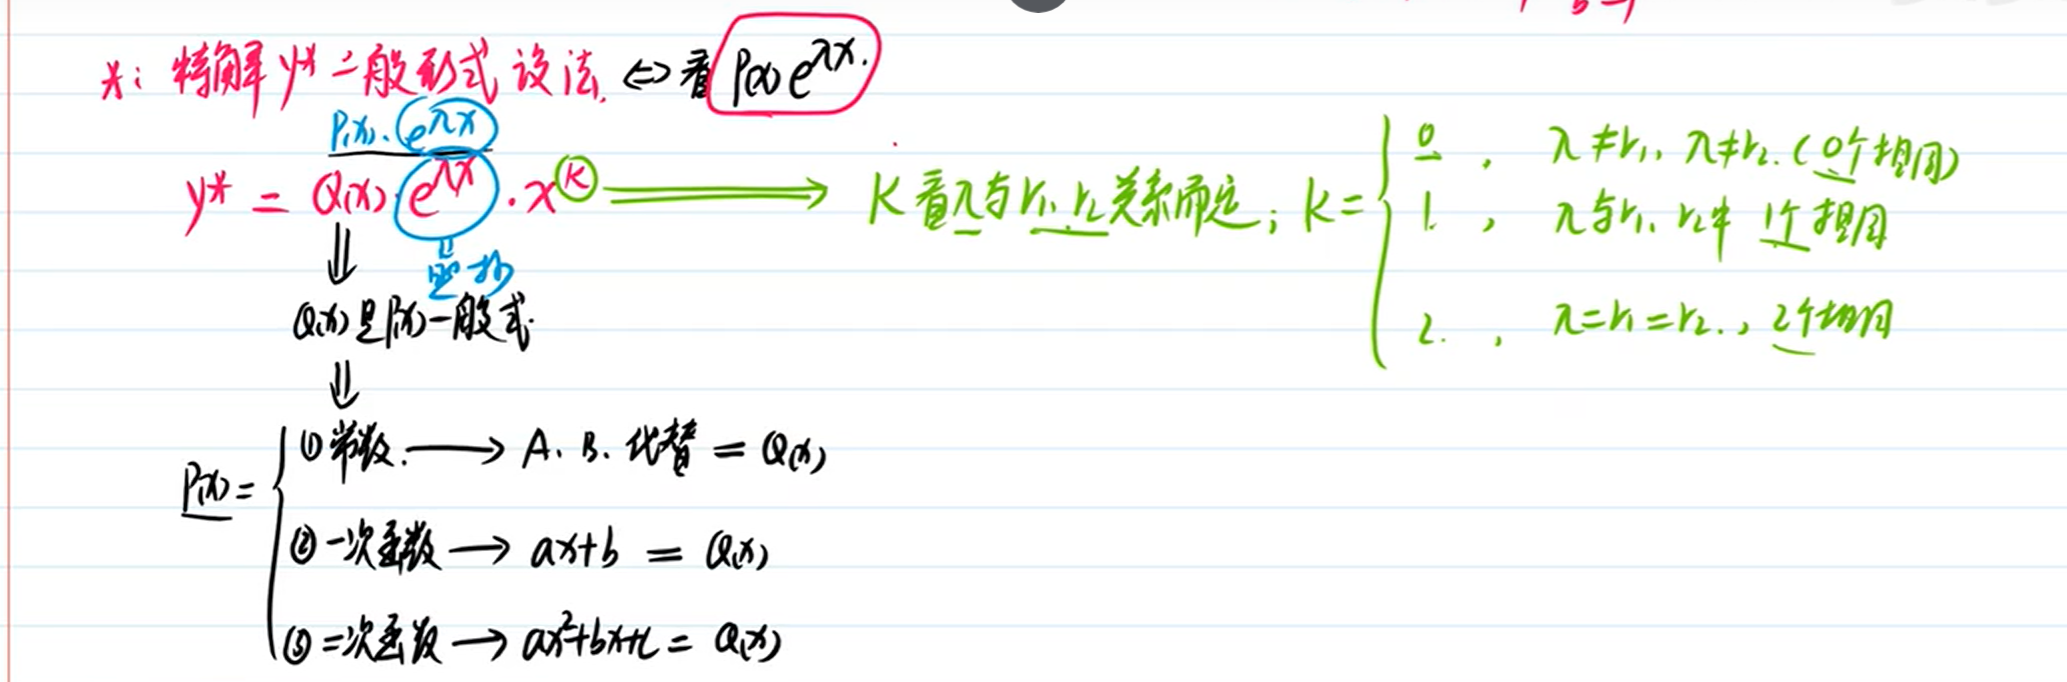 *: 特解 y* 一般形式 设法. ⇔ 看 P(x) e^{λx}.
P(x)·e^{λx}
y* = Q(x)·e^{λx}·x^k ⟹ K 看λ与 r₁, r₂关系而定; K = { 0 , λ≠r₁, λ≠r₂. (0个相同)
1. , λ与r₁, r₂中 1个相同
2. , λ=r₁=r₂. , 2个相同
⇓ 照抄
Q(x)是P(x)一般式.
⇓
P(x) = { ①常数. ⟶ A. B. 代替 = Q(x)
②一次函数 ⟶ ax+b = Q(x)
③二次函数 ⟶ ax²+bx+c = Q(x)